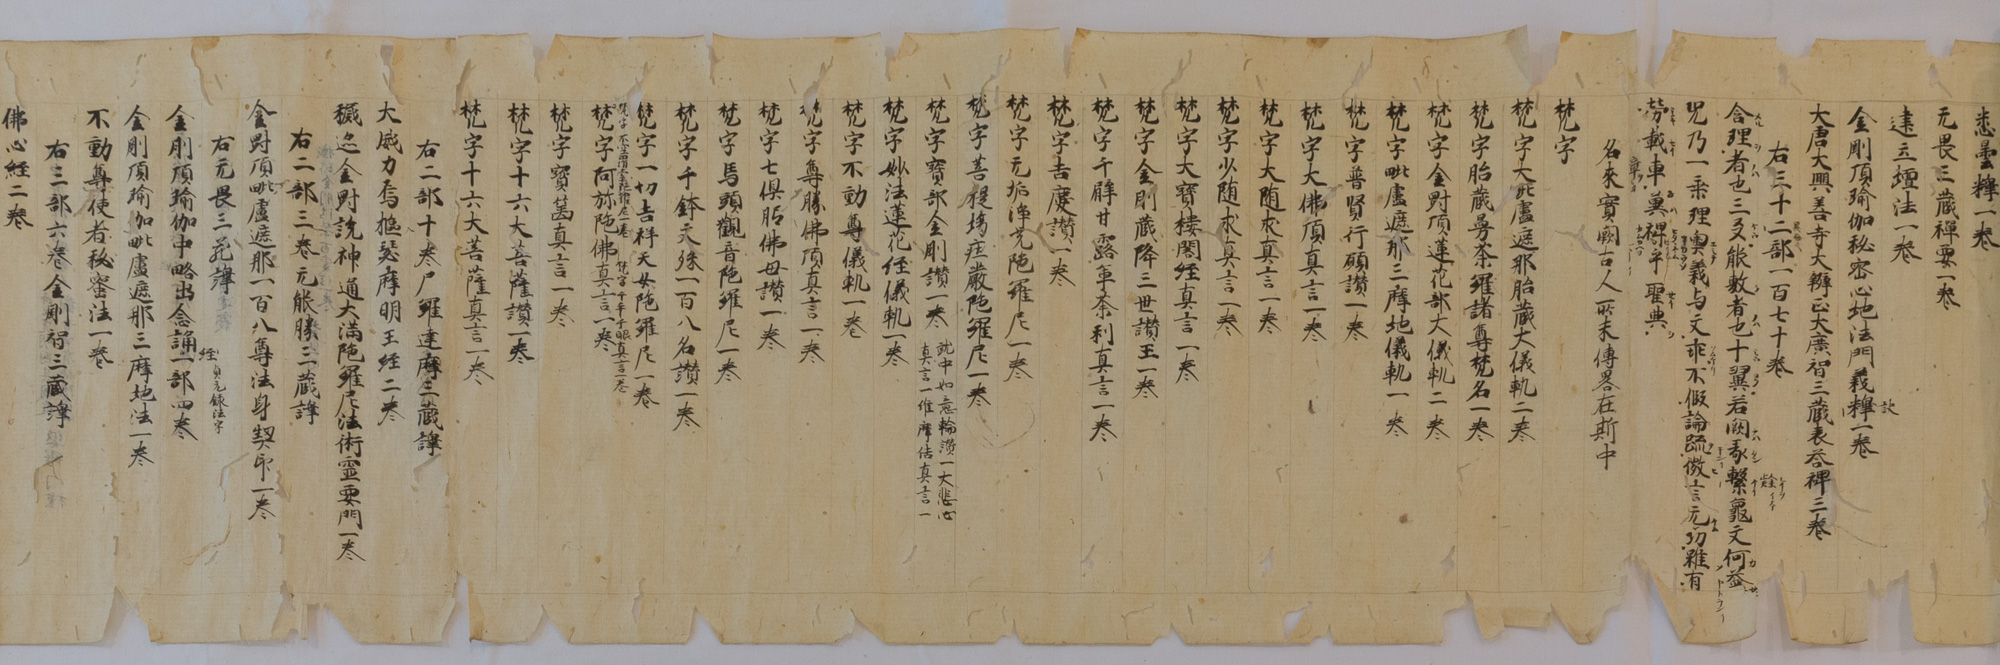 悉曇釋一卷
无畏三藏禪要一卷
建立壇法一卷
金剛頂瑜伽秘密心地法門義釋一卷
大唐大興善寺大辯正大廣智三藏表答碑三卷
右三十二部一百七十卷
含理者也三爻能敷者也十翼若闕彖繫龜文何益
況乃一乘理奧義与文乖不假論疏微言无功雖有
載車 聖典
名來實闕古人所未傳畧在斯中
梵字
梵字大毗盧遮那胎藏大儀軌二卷
梵字胎藏曼荼羅諸尊梵名一卷
梵字金剛頂蓮花部大儀軌二卷
梵字毗盧遮那三摩地儀軌一卷
梵字普賢行願讚一卷
梵字大佛頂真言一卷
梵字大随求真言一卷
梵字少随求真言一卷
梵字大寶樓閣經真言一卷
梵字金剛藏降三世讚王一卷
梵字千臂甘露軍荼利真言一卷
梵字吉慶讚一卷
梵字无垢淨光陀羅尼一卷
梵字菩提場庄嚴陀羅尼一卷
梵字寶部金剛讚一卷
就中如意輪讚一大悲心
真言一維摩詰真言一
梵字妙法蓮花經儀軌一卷
梵字不動尊儀軌一卷
梵字尊勝佛頂真言一卷
梵字七俱胝佛母讚一卷
梵字馬頭觀音陀羅尼一卷
梵字千鉢文殊一百八名讚一卷
梵字一切吉祥天女陀羅尼一卷
梵字千手千眼真言一卷
梵字阿弥陀佛真言一卷
梵字寶篋真言一卷
梵字十六大菩薩讚一卷
梵字十六大菩薩真言一卷
右二部十卷尸羅達摩三藏譯
大威力烏樞瑟摩明王經二卷
穢迹金剛說神通大滿陀羅尼法術靈要門一卷
右二部三卷无能勝三藏譯
金剛頂毗盧遮那一百八尊法身契印一卷
右无畏三藏譯
金剛頂瑜伽中略出念誦一部四卷
經
金剛頂瑜伽毗盧遮那三摩地法一卷
不動尊使者秘密法一卷
右三部六卷金剛智三藏譯
佛心經二卷